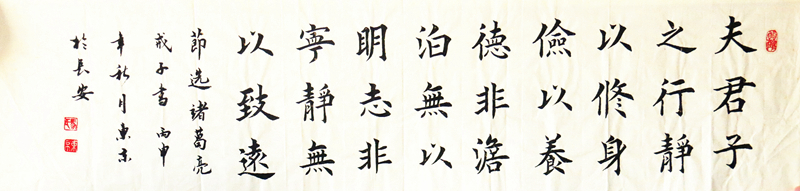 夫君子
之行靜
以修身
儉以養
德非澹
泊無以
明志非
寧靜無
以致遠
節選諸葛亮
戒子書丙申
年秋月東
於長安